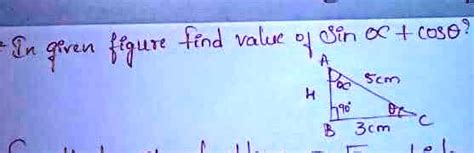 - In given figure find value of Sin α + cosθ?
A
α 5cm
H
90° θ C
B 3cm